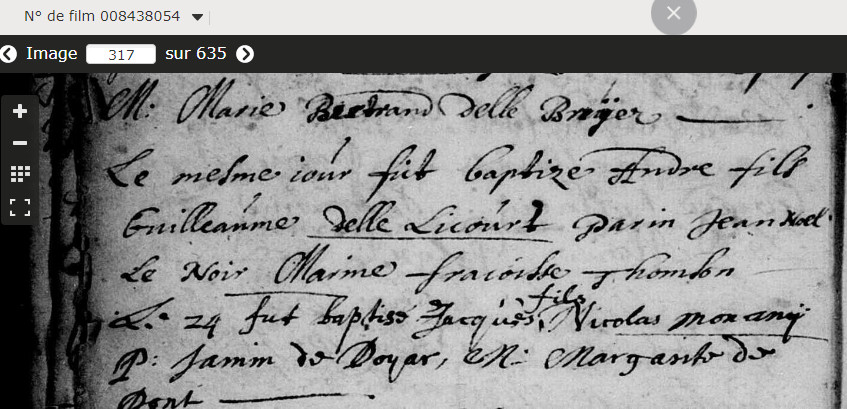 N° de film 008438054
Image 317 sur 635
M: Marie Bertrand delle Brüyer
Le mesme iour fut baptize Andre fils
Guilleaume delle Licourt parin Jean Noel
Le Noir Marine fracoisse Thomson
Le 24 fut baptisé Jacques fils Nicolas monanij
P: Jamin de Doyar, M: Margarite de
Pont